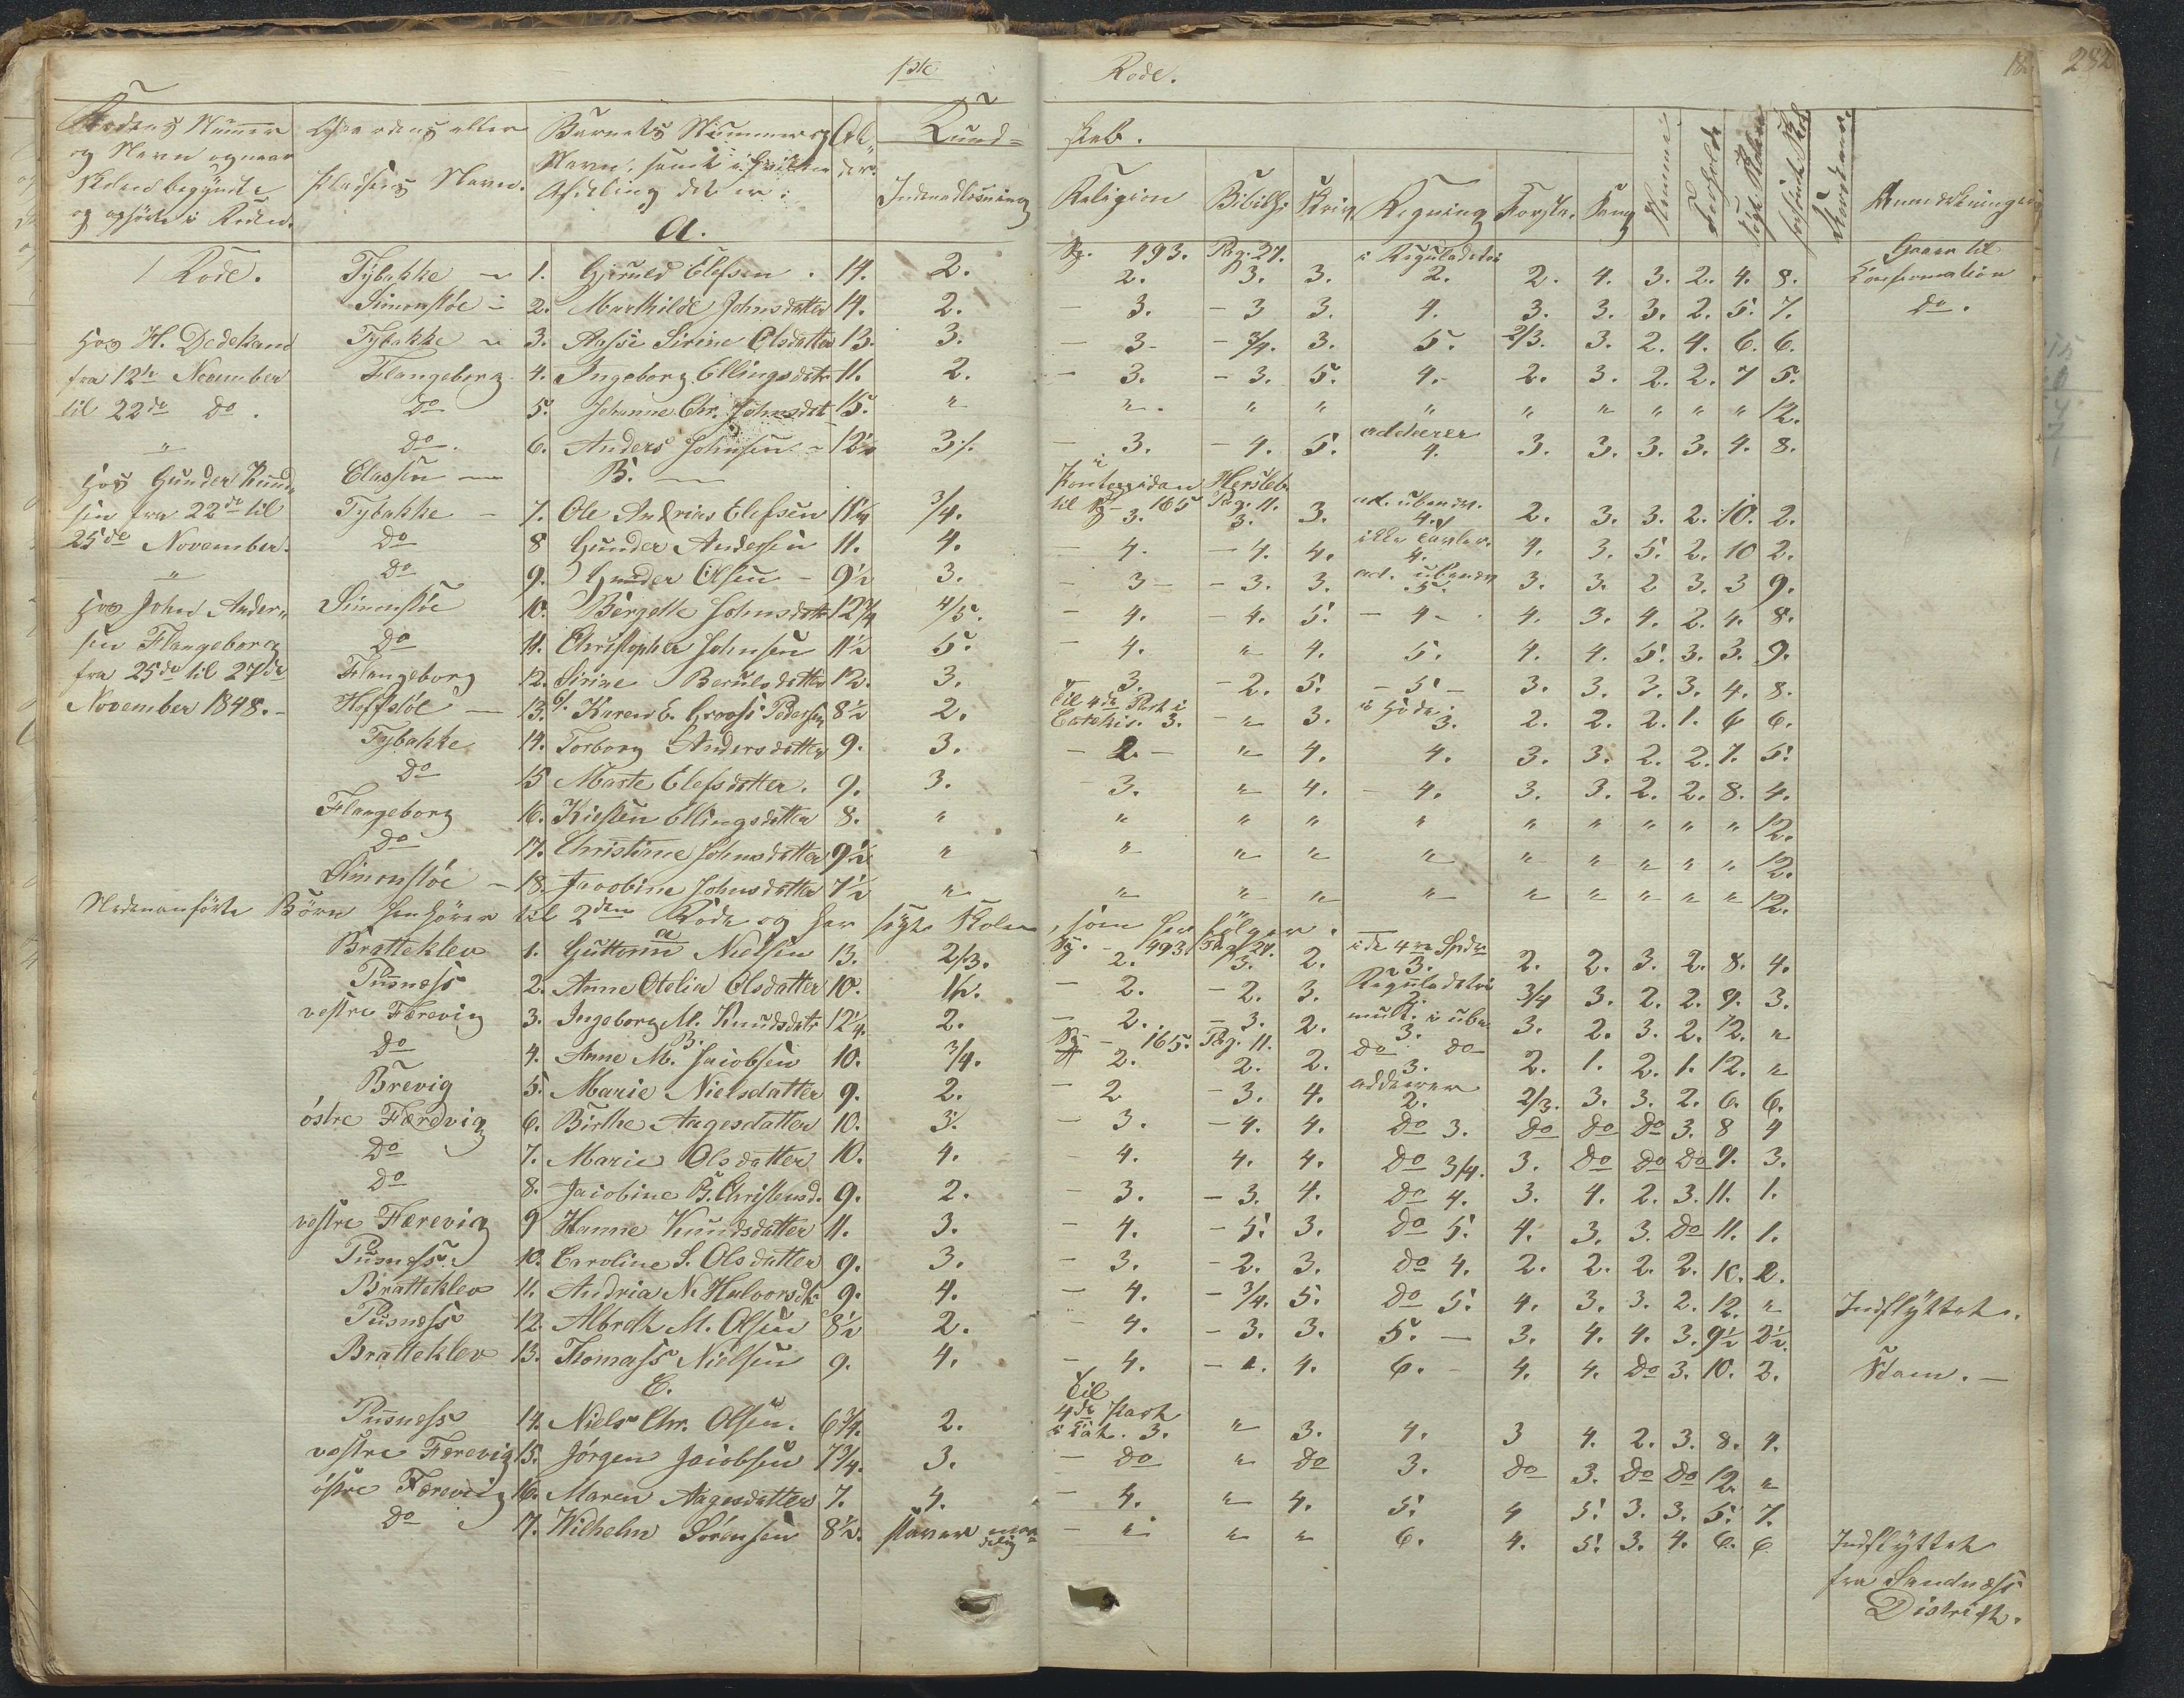 1ste Rode. 282
Rodens Nummer og Navn og naar Skolen begyndte og ophørte i Roden. Gaardens eller Pladsens Navn. Barnets Nummer og Navn, samt i hvilken Afdeling det er: Alder. Kundskab.
Indenadlæsning Religion Bibelh: Skriv. Regning Forsta. Sang Anmærkninger
A.
1 Rode. Tybakke 1. Gjeruld Elefsen. 14. 2. Sp. 493. 2. Pag. 27. 3. 3. i Reguladetri 2. 2. 4. 3. 2. 4. 8. Gaaer til Confirmation
Simonstöe 2. Marthilde Johnsdatter 14. 2. 3. - 3 3. 4. 3. 3. 3. 2. 5. 7. do.
hos H. Dedekam Tybakke 3. Aasse Sirine Olsdatter 13. 3. - 3 - - 3/4. 3. 5. 2/3. 3. 2. 4. 6. 6.
fra 12te November Flangeborg 4. Ingeborg Ellingsdatr 11. 2. - 3. - 3. 5. 4. 2. 3. 2. 2. 7 5.
til 22de do. do 5. Johanne Chr. Johnsdat 15. " " " " " " " " " " 12.
" do. 6. Anders Johnsen 12 1/2 3/. - 3. - 4. 5. adderer 4. 3. 3. 3. 3. 4. 8.
hos Gunder Knud- Classen B.
sen fra 22de til Tybakke - 7. Ole Andrias Elefsen 11 1/4 3/4. Pontoppidan til Sp - 165 3. Herslebs Pag. 11. 3. 3. ad. ubenev. 4. 2. 3. 3. 2. 10. 2.
25de November. do 8 Gunder Andersen 11. 4. - 4. - 4. 4. ikke 4. 4. 3. 5. 2. 10 2.
" do 9. Gunder Olsen - 9 1/2 3. - 3 - - 3. 3. ad. ubenev 5. 3. 3. 2 3. 3 9.
hos John Ander- Simonstöe 10. Bergette Johnsdatr 12 3/4 4/5. - 4. - 4. 5. - 4 - 4. 3. 4. 2. 4. 8.
sen Flangeborg do 11. Christopher Johnsen 11 1/2 5. - 4. " 4. 5. 4. 4. 5. 3. 3. 9.
fra 25de til 27de Flangeborg 12. Sirine Berulsdatter 12. 3. - 3. - 2. 5. - 5 - 3. 3. 3. 3. 4. 8.
November 1848. - Hoffstöe 13. C. Karen E. Grooss Pedersen 8 1/2 2. Til 4de Part i Catekis. 3. - " 3. 3. 2. 2. 2. 1. 6 6.
Tybakke 14. Torborg Andersdatter 9. 3. - 2. - " 4. 4. 3. 3. 2. 2. 7. 5.
do 15 Marte Elefsdatter. 9. 3. 3. " 4. - 4. 3. 3. 2. 2. 8. 4.
Flangeborg 16. Kisten Ellingsdatter 8. " " " " " " " " " " 12.
do 17. Christine Johnsdatter 9 1/2 " " " " " " " " " " 12.
Simonstöe - 18. Jacobine Johnsdatter 7 1/2 " " " " " " " " " " 12.
Nedenanförte Börn henhörer til 2den Rode og har sögt Skolen, som her fölger.
Bratteklev 1. a Guttorm Nielsen 13. 2/3. Sp. - 493. 2. Pag. 27. 3. 2. i de 4re Spdr 3. 2. 2. 3. 2. 8. 4.
Pusness 2. Anne Otelia Olsdatter 10. 1/2. - 2. - 2. 3. Reguladetri 2. 3/4 3. 2. 2. 9. 3.
vestre Færevig 3. Ingeborg M. Knudsdatr 12 1/4. 2. - 2. - 3. 2. mult. i ube. 3. 3. 2. 3. 2. 12. "
do 4. B. Anne M. Jacobsen 10. 3/4. Sp - 165. 2. Pag. 11. 2. 2. do do 3. 2. 1. 2. 1. 12. "
Brevig 5. Marie Nielsdatter 9. 2. - 2 - 3. 4. adderer 2. 2/3. 3. 3. 2. 6. 6.
östre Færevig 6. Birthe Aagesdatter 10. 3. - 3. - 4. 4. do 3. do do do 3. 8 4
do 7. Marie Olsdatter 10. 4. - 4. 4. 4. do 3/4. 3. do do do 9. 3.
do 8. Jacobine B. Christensd. 9. 2. - 3. - 3. 4. do 4. 3. 4. 2. 3. 11. 1.
vestre Færevig 9 Hanne Knudsdatter 11. 3. - 4. - 5. 3. do 5. 4. 3. 3. do 11. 1.
Pusness. 10. Caroline S. Olsdatter 9. 3. - 3. - 2. 3. do 4. 2. 2. 2. 2. 10. 2.
Bratteklev 11. Andria N. Halvorsdtr 9. 4. - 4. - 3/4. 5. do 5. 4. 3. 3. 2. 12. " Indflyttet.
Pusness 12. Albreth M. Olsen 8 1/2 2. - 4. - 3. 3. 5. - 3. 4. 4. 3. 9 1/2 2 1/2.
Bratteklev 13. Thomass Nielsen 9. 4. - 4. - 4. 4. 6. - 4. 4. do 3. 10. 2. Dom. -
C.
Pusness 14. Niels Chr. Olsen. 6 3/4. 2. Til 4de Part i Cat. 3. " 3. 4. 3 4. 2. 3. 8. 4.
vestre Færevig 15. Jörgen Jacobsen 7 3/4. 3. - do " do 3. do 3. do do 12. "
östre Færevig 16. Maren Aagesdatter 7. 4. - 4. " 4. 5. 4 5. 3. 3. 5. 7.
do 17. Wilhelm Sörensen 8 1/2. staver maadelig - " " " 6. 4. 5. 3. 4. 6. 6 Indflyttet
fra Sandnæss
District.